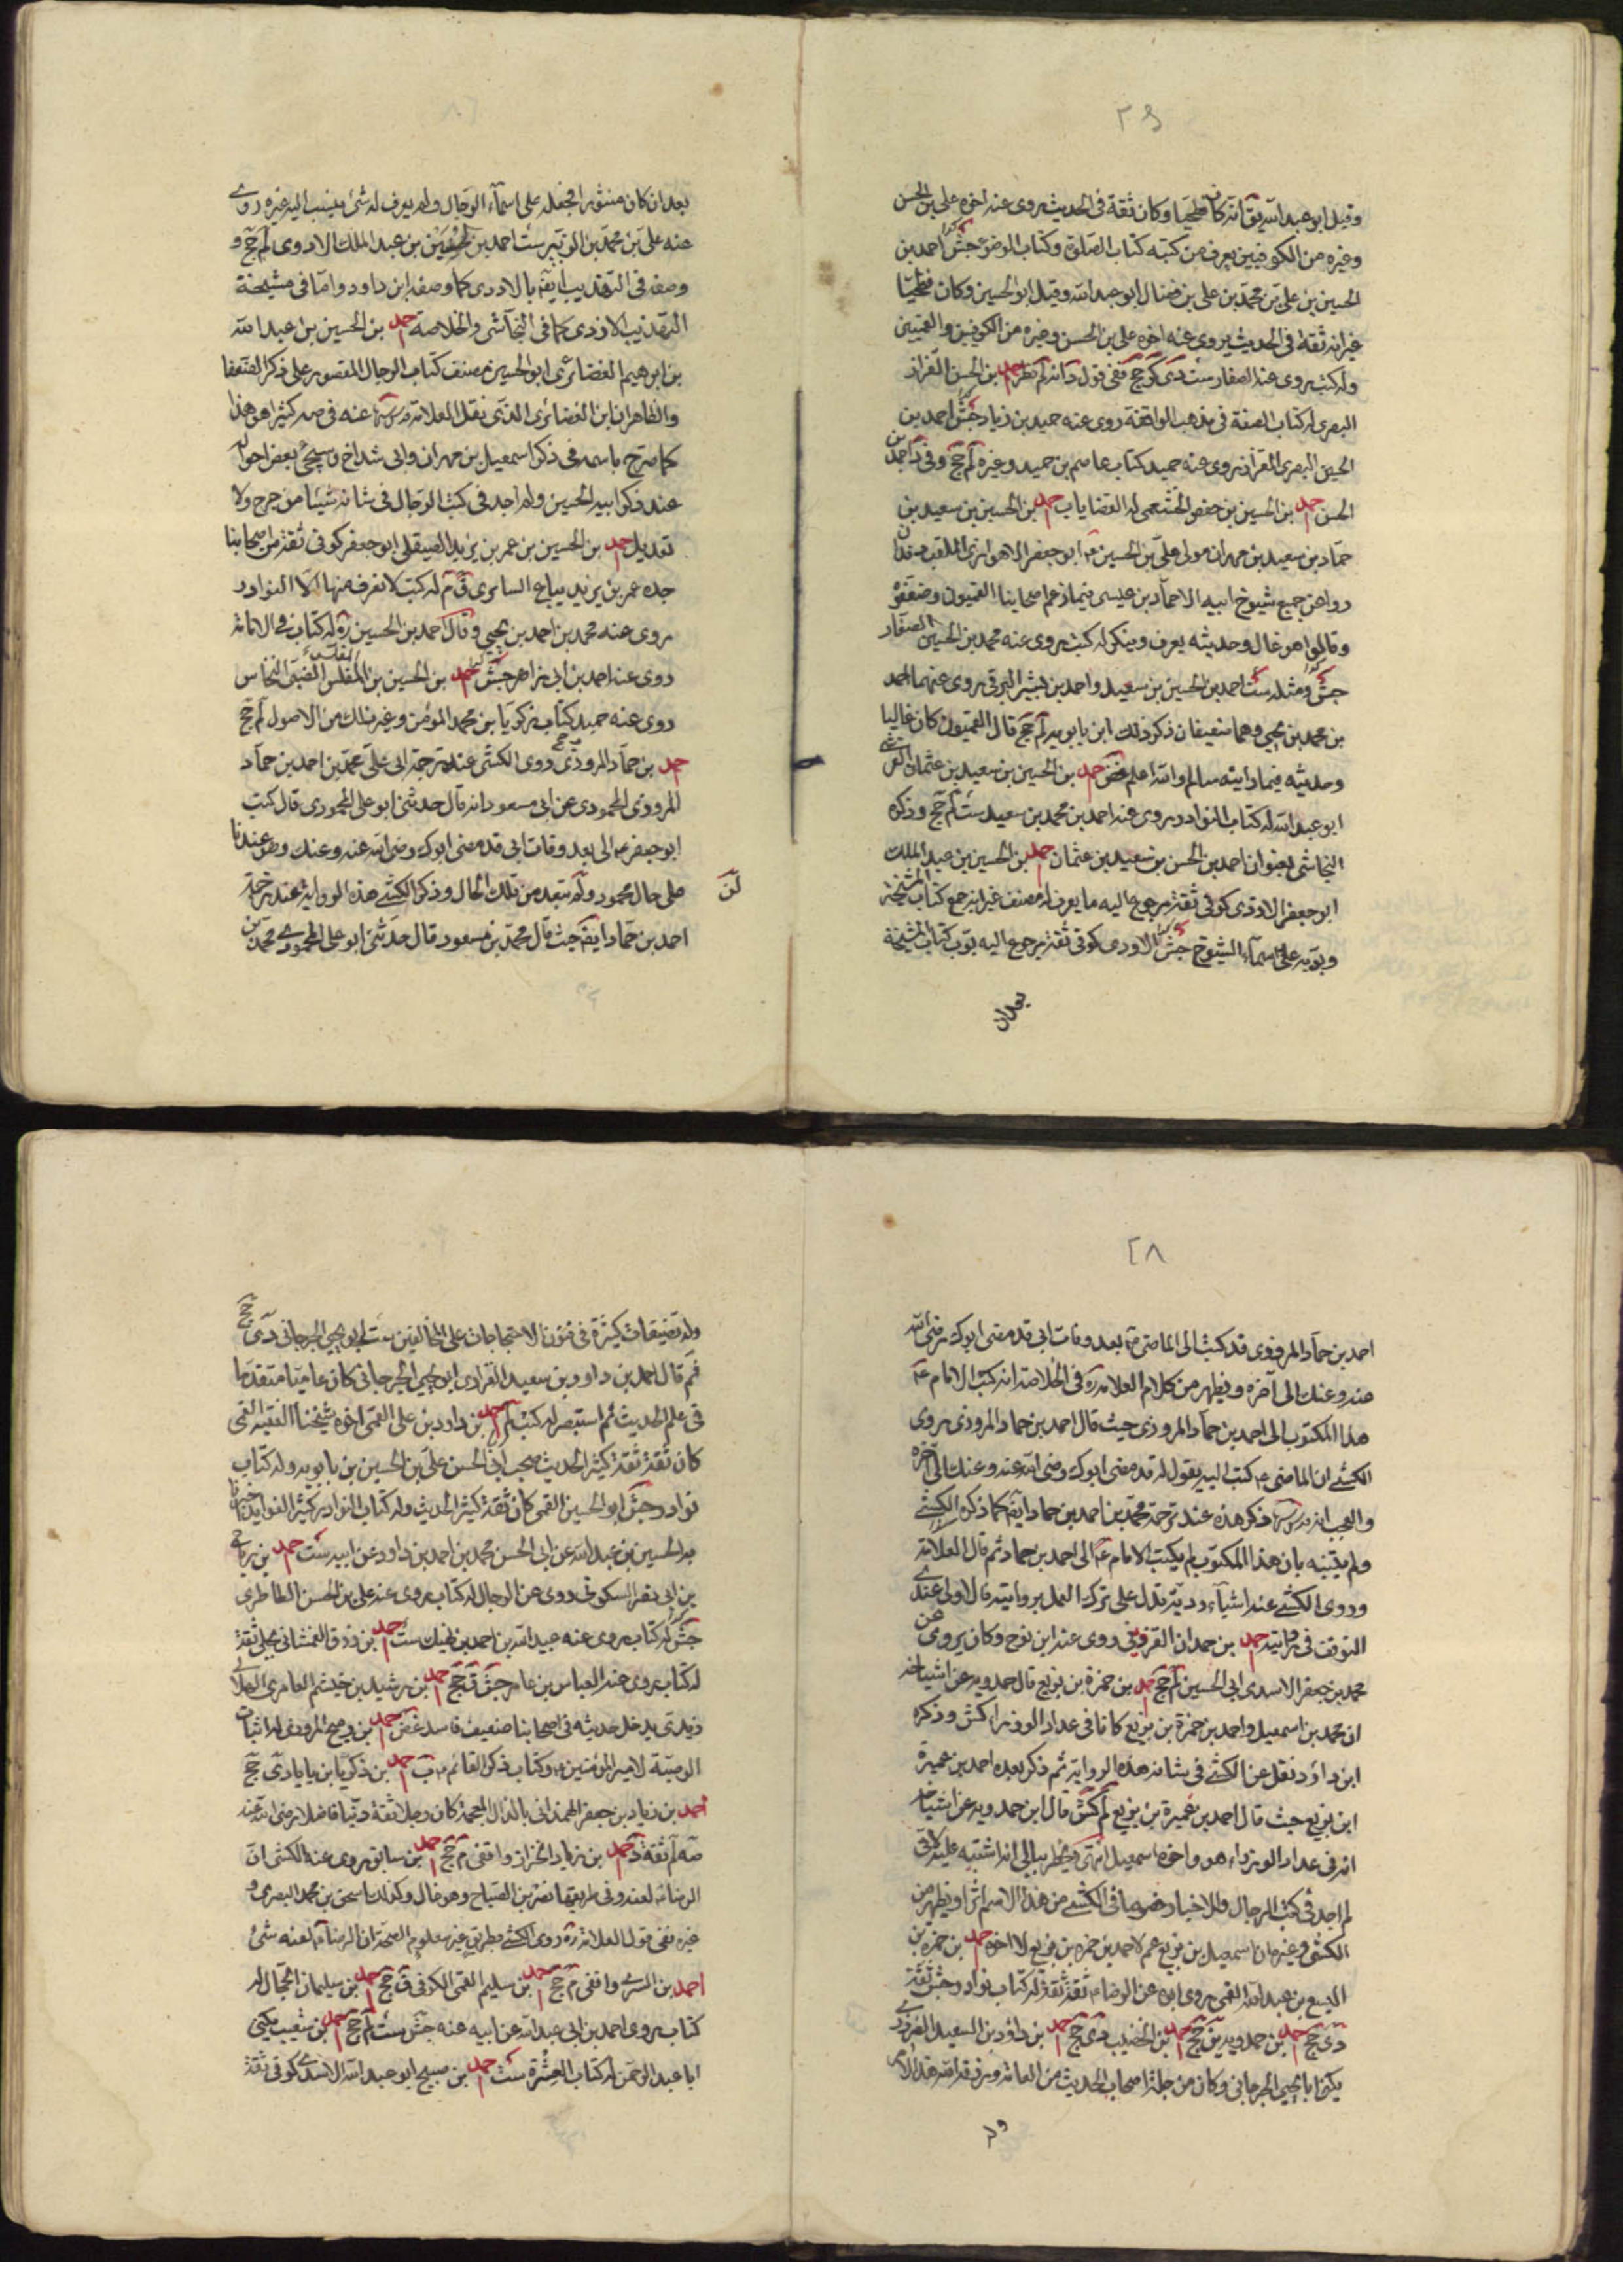 وقيل ابو عبد الله يق انه كان فطحيا وكان ثقة فى الحديث روى عنه اخوه على بن الحسن
وغيره من الكوفيين يعرف من كتبه كتاب الصلوة وكتاب الوضوء جش احمد بن
الحسين بن على بن محمد بن على بن فضال ابو عبد الله وقيل ابو الحسين وكان فطحيا
غير انه ثقة فى الحديث يروى عنه اخوه على بن الحسن وغيره من الكوفيين والقميين
وله كتب روى عنه الصفار ست دى كر جح ففى قول د انه لم نظر احمد بن الحسن القزاز
البصرى له كتاب الصفة فى مذهب الواقفة روى عنه حميد بن زياد جش احمد بن
الحسين البصرى القزاز روى عنه حميد كتاب عاصم بن حميد وغيره لم جح وفى د احمد بن
الحسن احمد بن الحسين بن حفص الخثعمى له القضايا ب احمد بن الحسين بن سعيد بن
حماد بن سعيد بن مهران مولى على بن الحسين ع ابو جعفر الاهوازى الملقب دندان
روى عن جميع شيوخ ابيه الا حماد بن عيسى فيما زعم اصحابنا القميون وضعفوه
وقالوا هو غال وحديثه يعرف وينكر له كتب روى عنه محمد بن الحسن الصفار
جش ومثله ست احمد بن الحسين بن سعيد واحمد بن بشير البرقى روى عنهما محمد
بن محمد بن يحيى وهما ضعيفان ذكر ذلك ابن بابويه لم جح قال القميون كان غاليا
وحديثه فيما رايته سالم والله اعلم غض احمد بن الحسين بن سعيد بن عثمان القرشى
ابو عبد الله له كتاب النوادر روى عنه احمد بن محمد بن سعيد ست لم جح وذكره
النجاشى بعنوان احمد بن الحسن بن سعيد بن عثمان احمد بن الحسين بن عبد الملك
ابو جعفر الاودى كوفى ثقة مرجوع اليه ما يعرف له مصنف غير انه جمع كتاب المشيخة
وبوبه على اسماء الشيوخ جش الاودى كوفى ثقة مرجوع اليه بوب كتاب المشيخة
بعد ان
بعد ان كان منثورا فجعله على اسماء الرجال ولم يعرف له شئ ينسب اليه غيره روى
عنه على بن محمد بن الزبير ست احمد بن الحسين بن عبد الملك الاودى لم جح و
وصفه فى التهذيب ايضا بالاودى كما وصفه ابن داود واما فى مشيخة
التهذيب الازدى كما فى النجاشى والخلاصة احمد بن الحسين بن عبد الله
بن ابرهيم الغضائرى ابو الحسين مصنف كتاب الرجال المقصور على ذكر الضعفا
والظاهر انه ابن الغضائرى الذى نقل العلامة قدس سره عنه فى صه كثيرا هو هذا
كما صرح باسمه فى ذكر اسمعيل بن مهران وابى شداخ وسيجئ بعض احواله
عند ذكر ابيه الحسين ولم اجد فى كتب الرجال فى شانه شيئا من جرح ولا
تعديل احمد بن الحسين بن عمر بن يزيد الصيقل ابو جعفر كوفى ثقة من اصحابنا
جده عمر بن يزيد بياع السابرى ق م له كتب لا نعرف منها الا النوادر
روى عنه محمد بن احمد بن يحيى وقال احمد بن الحسين ره له كتاب فى الامامة
روى عنه احمد بن ابى زاهر جش احمد بن الحسين بن المفلس الضبى النخاس
روى عنه حميد كتاب زكريا بن محمد المؤمن وغير ذلك من الاصول لم جح
احمد بن حماد المروزى روى الكشى عند ترجمة ابى على محمد بن احمد بن حماد
المروزى المحمودى عن ابن مسعود انه قال حدثنى ابو على المحمودى قال كتب
ابو جعفر ع الى بعد وفات ابى قد مضى ابوك رضى الله عنه وعنك وهو عندنا
على حال محمود ولن تبعد من تلك الحال وذكر الكشى هذه الرواية عند ترجمة
لن
احمد بن حماد ايضا حيث قال محمد بن مسعود قال حدثنى ابو على المحمودى محمد بن
٢٨
احمد بن حماد المروزى قد كتب الى الماضى ع بعد وفات ابى قد مضى ابوك رضى الله
عنه وعنك الى آخره ويظهر من كلام العلامة ره فى الخلاصة انه كتب الامام ع
هذا المكتوب الى احمد بن حماد المروزى حيث قال احمد بن حماد المروزى روى
الكشى ان الماضى ع كتب اليه يقول له قد مضى ابوك رضى الله عنه وعنك الى آخره
والعجب انه قدس سره ذكر هذه عند ترجمة محمد بن احمد بن حماد ايضا كما ذكره الكشى
ولم يتنبه بان هذا المكتوب لم يكتب الامام ع الى احمد بن حماد ثم قال العلامة
وروى الكشى عنه اشياء ردية تدل على ترك العمل بروايته فالاولى عندى
التوقف فى روايته احمد بن حمدان القزوينى روى عنه ابن نوح وكان يروى عن
محمد بن جعفر الاسدى ابى الحسين لم جح احمد بن حمزة بن بزيع قال حمدويه عن اشياخه
ان محمد بن اسمعيل واحمد بن حمزة بن بزيع كانا فى عداد الوزراء كش وذكره
ابن داود نقل عن الكشى فى شانه هذه الرواية ثم ذكر بعده احمد بن عميرة
ابن بزيع حيث قال احمد بن عميرة بن بزيع لم كش قال ابن حمدويه عن اشياخه
انه فى عداد الوزراء هو واخوه اسمعيل انتهى ويخطر ببالى انه اشتبه عليه لانى
لم اجد فى كتب الرجال والاخبار خصوصا فى الكشى من هذا الاسم اثرا ويظهر من
الكشى وغيره ان اسمعيل بن بزيع عم لاحمد بن حمزه بن بزيع لا اخوه احمد بن حمزه بن
اليسع بن عبد الله القمى روى ابوه عن الرضا ع ثقة ثقة له كتاب نوادر جش ثقة
دى جح احمد بن حمدويه ين جح احمد بن الخضيب دى جح احمد بن داود بن السعيد الفزارى
يكنى ابا يحيى الجرجانى وكان من جلة اصحاب الحديث من العامة ورزقه الله هذا الامر
وله
وله تصنيفات كثيرة فى فنون الاحتجاجات على المخالفين ست ابو يحيى الجرجانى دى جح
ثم قال احمد بن داود بن سعيد الفزارى ابو يحيى الجرجانى كان عاميا متقدما
فى علم الحديث ثم استبصر له كتب لم احمد بن داود بن على القمى اخوه شيخنا الفقيه القمى
كان ثقة ثقة كثير الحديث صحب ابى الحسن على بن الحسين بن بابويه وله كتاب
نوادر جش ابو الحسين القمى كان ثقة كثير الحديث وله كتاب النوادر كثير الفوايد اخبرنا
به الحسين بن عبد الله عن ابى الحسن محمد بن احمد بن داود عن ابيه ست احمد بن رباح
بن ابى نصر السكونى روى عن الرجال له كتاب روى عنه على بن الحسن الطاطرى
جش له كتاب روى عنه عبيد الله بن احمد بن نهيك ست احمد بن رزق الغمشانى بجلى ثقة
له كتاب روى عنه العباس بن عامر جش ق جح احمد بن رشيد بن خيثم العامرى الهلالى
زيدى يدخل حديثه فى اصحابنا ضعيف فاسد غض احمد بن رميح المروزى له اثبات
الوصية لامير المؤمنين ع وكتاب ذكر القائم ع ب احمد بن زكريا بن بابا دى جح
احمد بن زياد بن جعفر الهمذانى بالذال المعجمة كان رجلا ثقة دينا فاضلا رضى الله عنه
صه لم ثقة د احمد بن زياد الخزاز واقفى م جح احمد بن سابق روى عنه الكشى ان
الرضا ع لعنه وفى طريقها نصر بن الصباح وهو غال وكذلك اسحق بن محمد البصرى و
غيره ففى قول العلامة ره روى الكشى بطريق غير معلوم الصحة ان الرضا ع لعنه شئ
احمد بن السرى واقفى م جح احمد بن سليم القمى الكوفى ق جح احمد بن سليمان الحجال له
كتاب روى احمد بن ابى عبد الله عن ابيه عنه جش ست لم جح احمد بن شعيب يكنى
ابا عبد الرحمن له كتاب العشرة ست احمد بن صبيح ابو عبد الله الاسدى كوفى ثقة